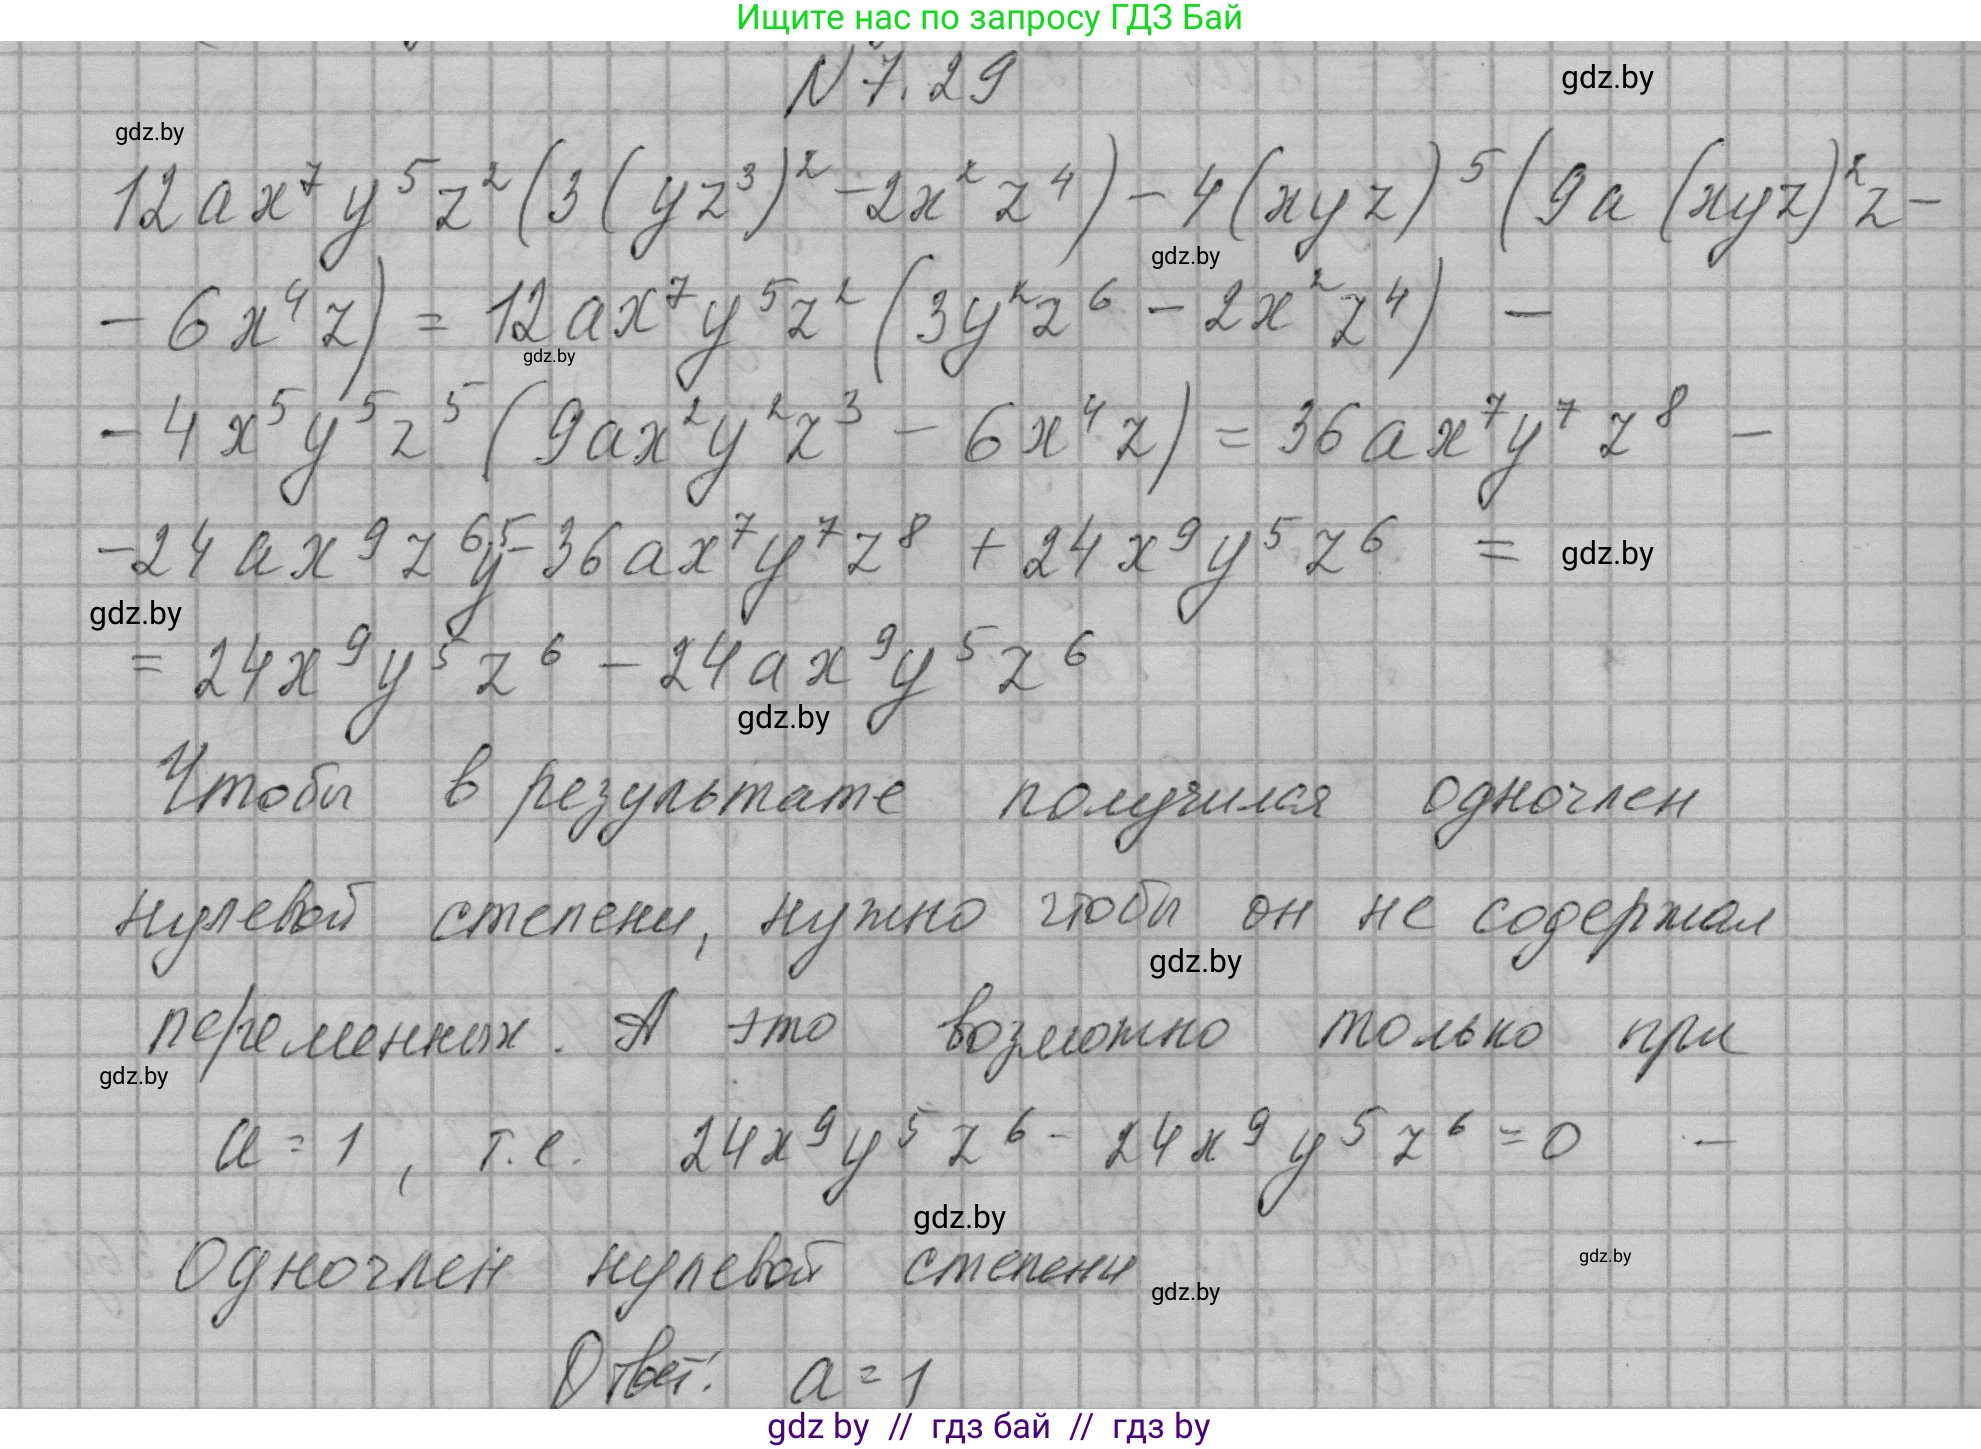 Ищите нас по запросу ГДЗ Бай
N 7.29
gdz.by
gdz.by
12ax⁷y⁵z²(3(yz³)²-2x²z⁴)-4(xyz)⁵(9a(xyz)²z-
gdz.by
-6x⁴z)=12ax⁷y⁵z²(3y²z⁶-2x²z⁴)-
gdz.by
-4x⁵y⁵z⁵(9ax²y²z³-6x⁴z)=36ax⁷y⁷z⁸-
-24ax⁹z⁶y⁵-36ax⁷y⁷z⁸+24x⁹y⁵z⁶=
gdz.by
gdz.by
=24x⁹y⁵z⁶-24ax⁹y⁵z⁶
gdz.by
Чтобы в результате получился одночлен
нулевой степени, нужно чтобы он не содержал
gdz.by
переменных. А это возможно только при
gdz.by
a=1, т.е. 24x⁹y⁵z⁶-24x⁹y⁵z⁶=0 -
gdz.by
одночлен нулевой степени
gdz.by
gdz.by
Ответ: a=1
gdz by // гдз бай // гдз by